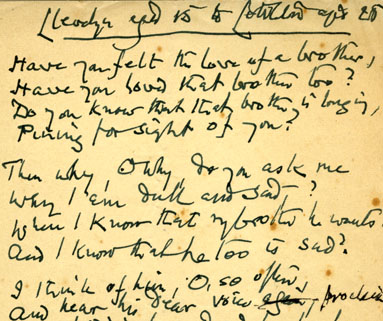 Llewelyn aged 15 to aged 20
Have you felt the love of a brother,
Have you loved that brother too?
Do you know that that brother is longing,
Pining for sight of you?
Then why, O why, do you ask me
Why I am dull and sad?
When I know that my brother he wants
And I know that he too is sad?
I think of him, O, so often,
And hear his dear voice